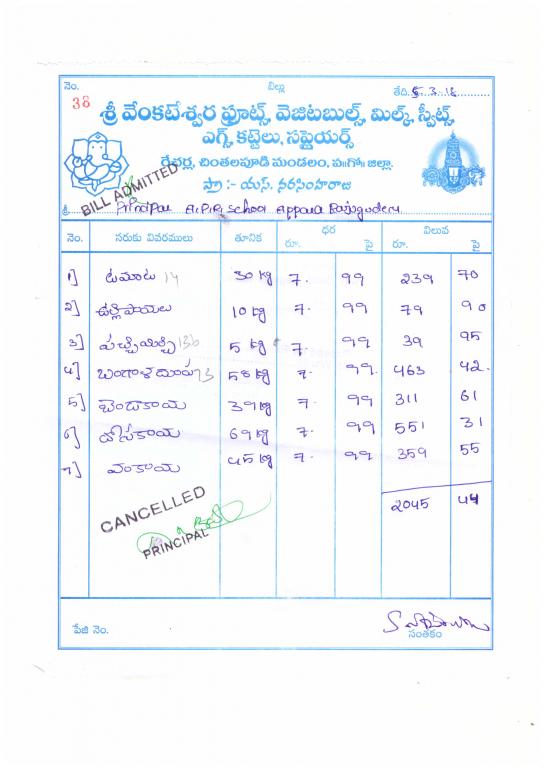 నెం. బిల్లు తేది 5. 3. 18
38
శ్రీ వేంకటేశ్వర ఫ్రూట్స్, వెజిటబుల్స్, మిల్క్, స్వీట్స్,
ఎగ్స్, కట్టెలు, సప్లైయర్స్
రేచర్ల, చింతలపూడి మండలం, ప॥గో॥ జిల్లా.
ప్రొ :- యస్. నరసింహరాజు
BILL ADMITTED
శ్రీ Principal A.P.R. School Appana
నెం. సరుకు వివరములు తూనిక ధర విలువ
రూ. పై రూ. పై
1] టమాట 14 30 kg 7. 99 239 70
2] ఉల్లిపాయలు 10 kg 7. 99 79 90
3] పచ్చిమిర్చి 136 5 kg 7. 99 39 95
4] బంగాళదుంప 73 58 kg 7. 99. 463 42.
5] బెండకాయ 39 kg 7. 99 311 61
6] దోసకాయ 69 kg 7. 99 551 31
7] వంకాయ 45 kg 7. 99 359 55
2045 44
CANCELLED
PRINCIPAL
పేజి నెం. సంతకం